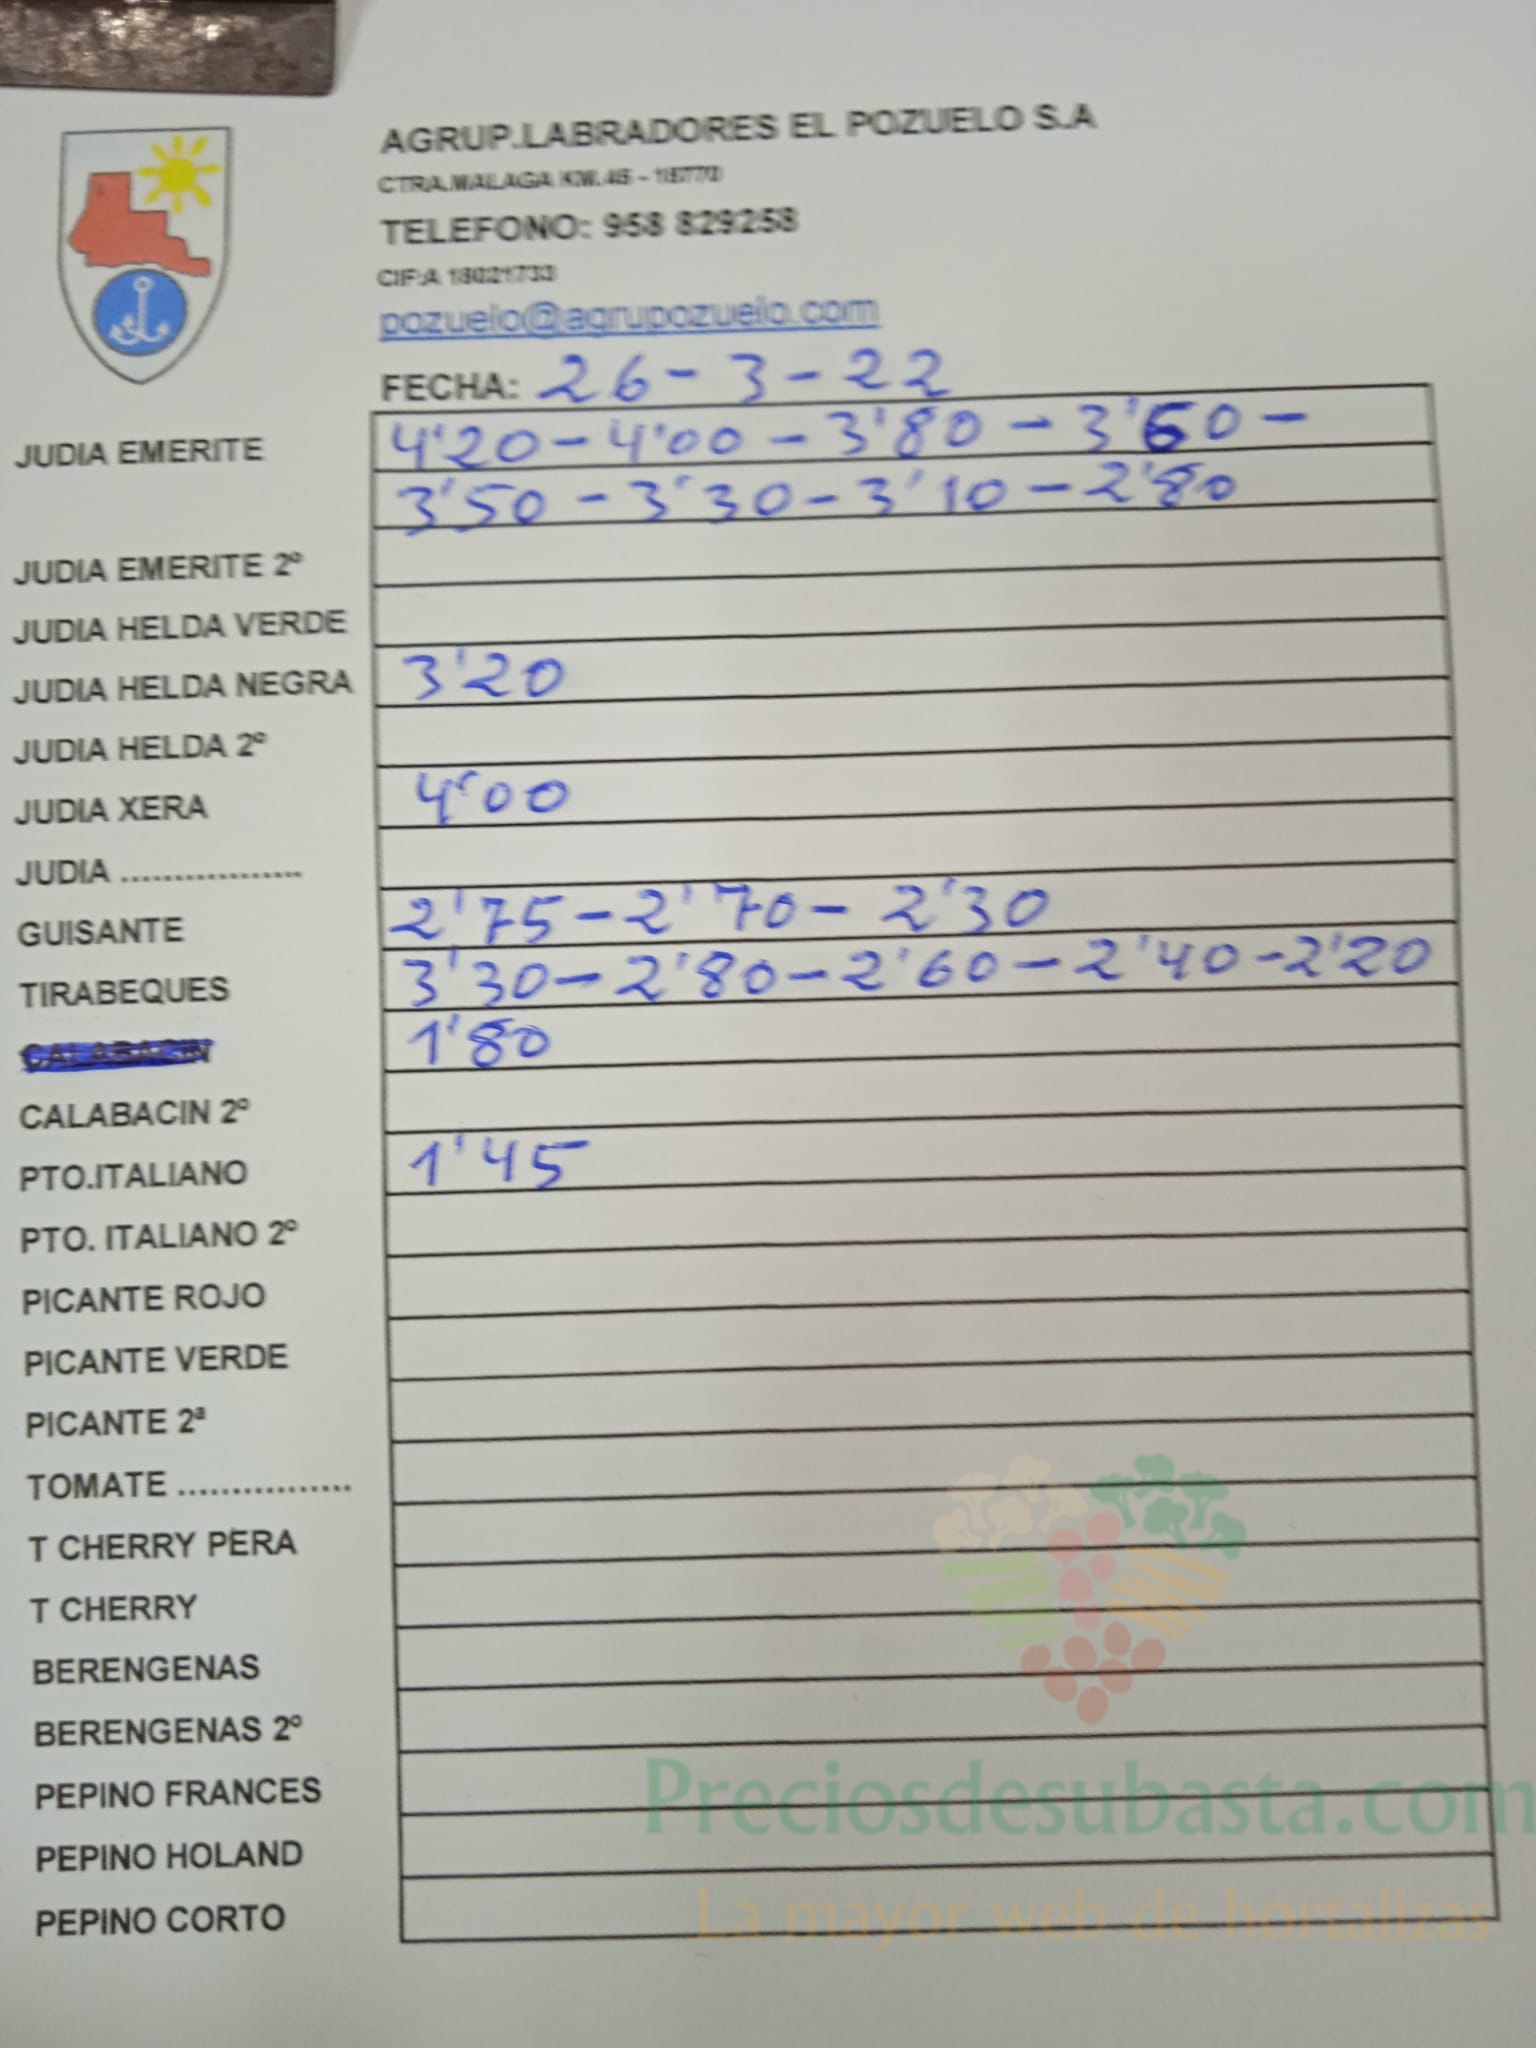 AGRUP.LABRADORES EL POZUELO S.A
CTRA.MALAGA KM.45 - 18770
TELEFONO: 958 829258
CIF:A 18021733
pozuelo@agrupozuelo.com
FECHA: 26-3-22
JUDIA EMERITE 4'20-4'00-3'80-3'60-
3'50-3'30-3'10-2'80
JUDIA EMERITE 2º
JUDIA HELDA VERDE
JUDIA HELDA NEGRA 3'20
JUDIA HELDA 2º
JUDIA XERA 4'00
JUDIA .................
GUISANTE 2'75-2'70-2'30
TIRABEQUES 3'30-2'80-2'60-2'40-2'20
CALABACIN 1'80
CALABACIN 2º
PTO.ITALIANO 1'45
PTO. ITALIANO 2º
PICANTE ROJO
PICANTE VERDE
PICANTE 2ª
TOMATE ................
T CHERRY PERA
T CHERRY
BERENGENAS
BERENGENAS 2º
PEPINO FRANCES
PEPINO HOLAND
PEPINO CORTO
Preciosdesubasta.com
La mayor web de hortalizas